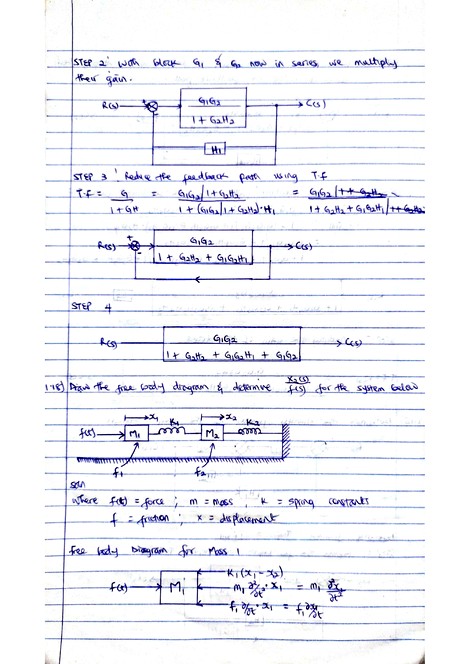 STEP 2: With block G₁ & G₂ now in series we multiply
their gain.
R(s) + - G₁G₂ / 1 + G₂H₂ C(s)
H₁
STEP 3: Reduce the feedback path using T.f
T.f = G / 1 + GH = G₁G₂/1+G₂H₂ / 1 + (G₁G₂/1+G₂H₂)·H₁ = G₁G₂/1+G₂H₂ / 1 + G₂H₂ + G₁G₂H₁/1+G₂H₂
R(s) + - G₁G₂ / 1 + G₂H₂ + G₁G₂H₁ C(s)
STEP 4
R(s) G₁G₂ / 1 + G₂H₂ + G₁G₂H₁ + G₁G₂ C(s)
Draw the free body diagram & determine X₂(s)/f(s) for the system below
x₁ K₁ x₂ K₂
f(t) M₁ M₂
f₁ f₂
Soln
where f(t) = force ; m = mass K = spring constants
f = friction ; x = displacement
free body Diagram for Mass 1
K₁(x₁ - x₂)
f(t) M₁ m₁ ∂²/∂t² · x₁ = m₁ ∂²x₁/∂t²
f₁ ∂/∂t · x₁ = f₁ ∂x₁/∂t